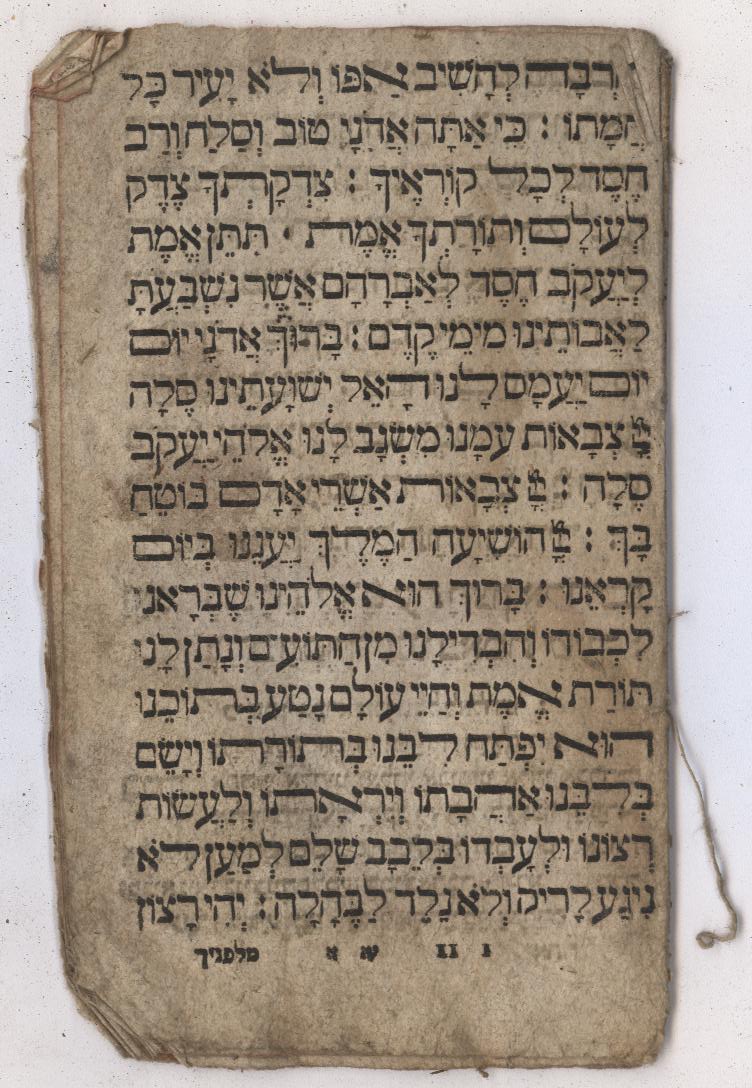 וְהִרְבָּה לְהָשִׁיב אַפּוֹ וְלֹא יָעִיר כָּל
חֲמָתוֹ : כִּי אַתָּה אֲדֹנָי טוֹב וְסַלָּח וְרַב
חֶסֶד לְכָל קוֹרְאֶיךָ : צִדְקָתְךָ צֶדֶק
לְעוֹלָם וְתוֹרָתְךָ אֱמֶת · תִּתֵּן אֱמֶת
לְיַעֲקֹב חֶסֶד לְאַבְרָהָם אֲשֶׁר נִשְׁבַּעְתָּ
לַאֲבוֹתֵינוּ מִימֵי קֶדֶם : בָּרוּךְ אֲדֹנָי יוֹם
יוֹם יַעֲמָס לָנוּ הָאֵל יְשׁוּעָתֵינוּ סֶלָה
יְיָ צְבָאוֹת עִמָּנוּ מִשְׂגָּב לָנוּ אֱלֹהֵי יַעֲקֹב
סֶלָה : יְיָ צְבָאוֹת אַשְׁרֵי אָדָם בּוֹטֵחַ
בָּךְ : יְיָ הוֹשִׁיעָה הַמֶּלֶךְ יַעֲנֵנוּ בְיוֹם
קָרְאֵנוּ : בָּרוּךְ הוּא אֱלֹהֵינוּ שֶׁבְּרָאָנוּ
לִכְבוֹדוֹ וְהִבְדִּילָנוּ מִן הַתּוֹעִים וְנָתַן לָנוּ
תּוֹרַת אֱמֶת וְחַיֵּי עוֹלָם נָטַע בְּתוֹכֵנוּ
הוּא יִפְתַּח לִבֵּנוּ בְּתוֹרָתוֹ וְיָשֵׂם
בְּלִבֵּנוּ אַהֲבָתוֹ וְיִרְאָתוֹ וְלַעֲשׂוֹת
רְצוֹנוֹ וּלְעָבְדוֹ בְּלֵבָב שָׁלֵם לְמַעַן לֹא
נִיגַע לָרִיק וְלֹא נֵלֵד לַבֶּהָלָה : יְהִי רָצוֹן
מלפניך